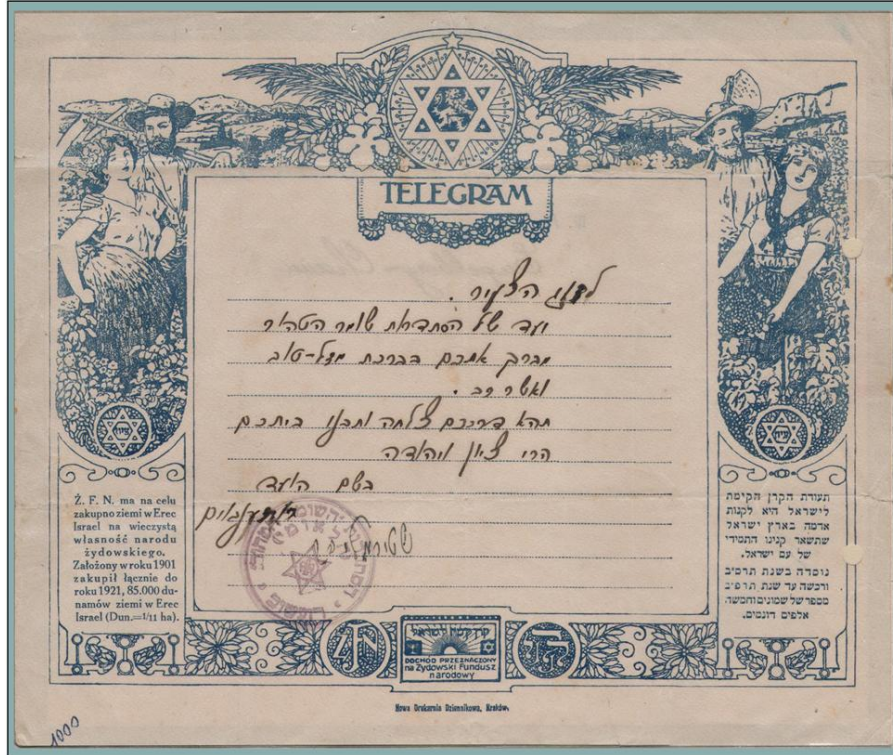 TELEGRAM
לזוג הצעיר.
ועד של הסתדרות שומר
מברך אתכם בברכת מזל-טוב
ואשר רב.
תהא דרככם צלחה ותבנו ביתכם
הרי ציון ויהודה
בשם הועד
Ż. F. N. ma na celu
zakupno ziemi w Erec
Israel na wieczystą
własność narodu
żydowskiego.
Założony w roku 1901
zakupił łącznie do
roku 1921, 85.000 du-
namów ziemi w Erec
Israel (Dun.=1/11 ha).
תעודת הקרן הקימת
לישראל היא לקנות
אדמה בארץ ישראל
שתשאר קנינו התמידי
של עם ישראל.
נוסדה בשנת תרס״ב
ורכשה עד שנת תרפ״ב
מספר של שמונים וחמשה
אלפים דונמים.
קרן קימת לישראל
DOCHÓD PRZEZNACZONY
na Żydowski Fundusz
narodowy
Nowa Drukarnia Dziennikowa, Kraków.
1000